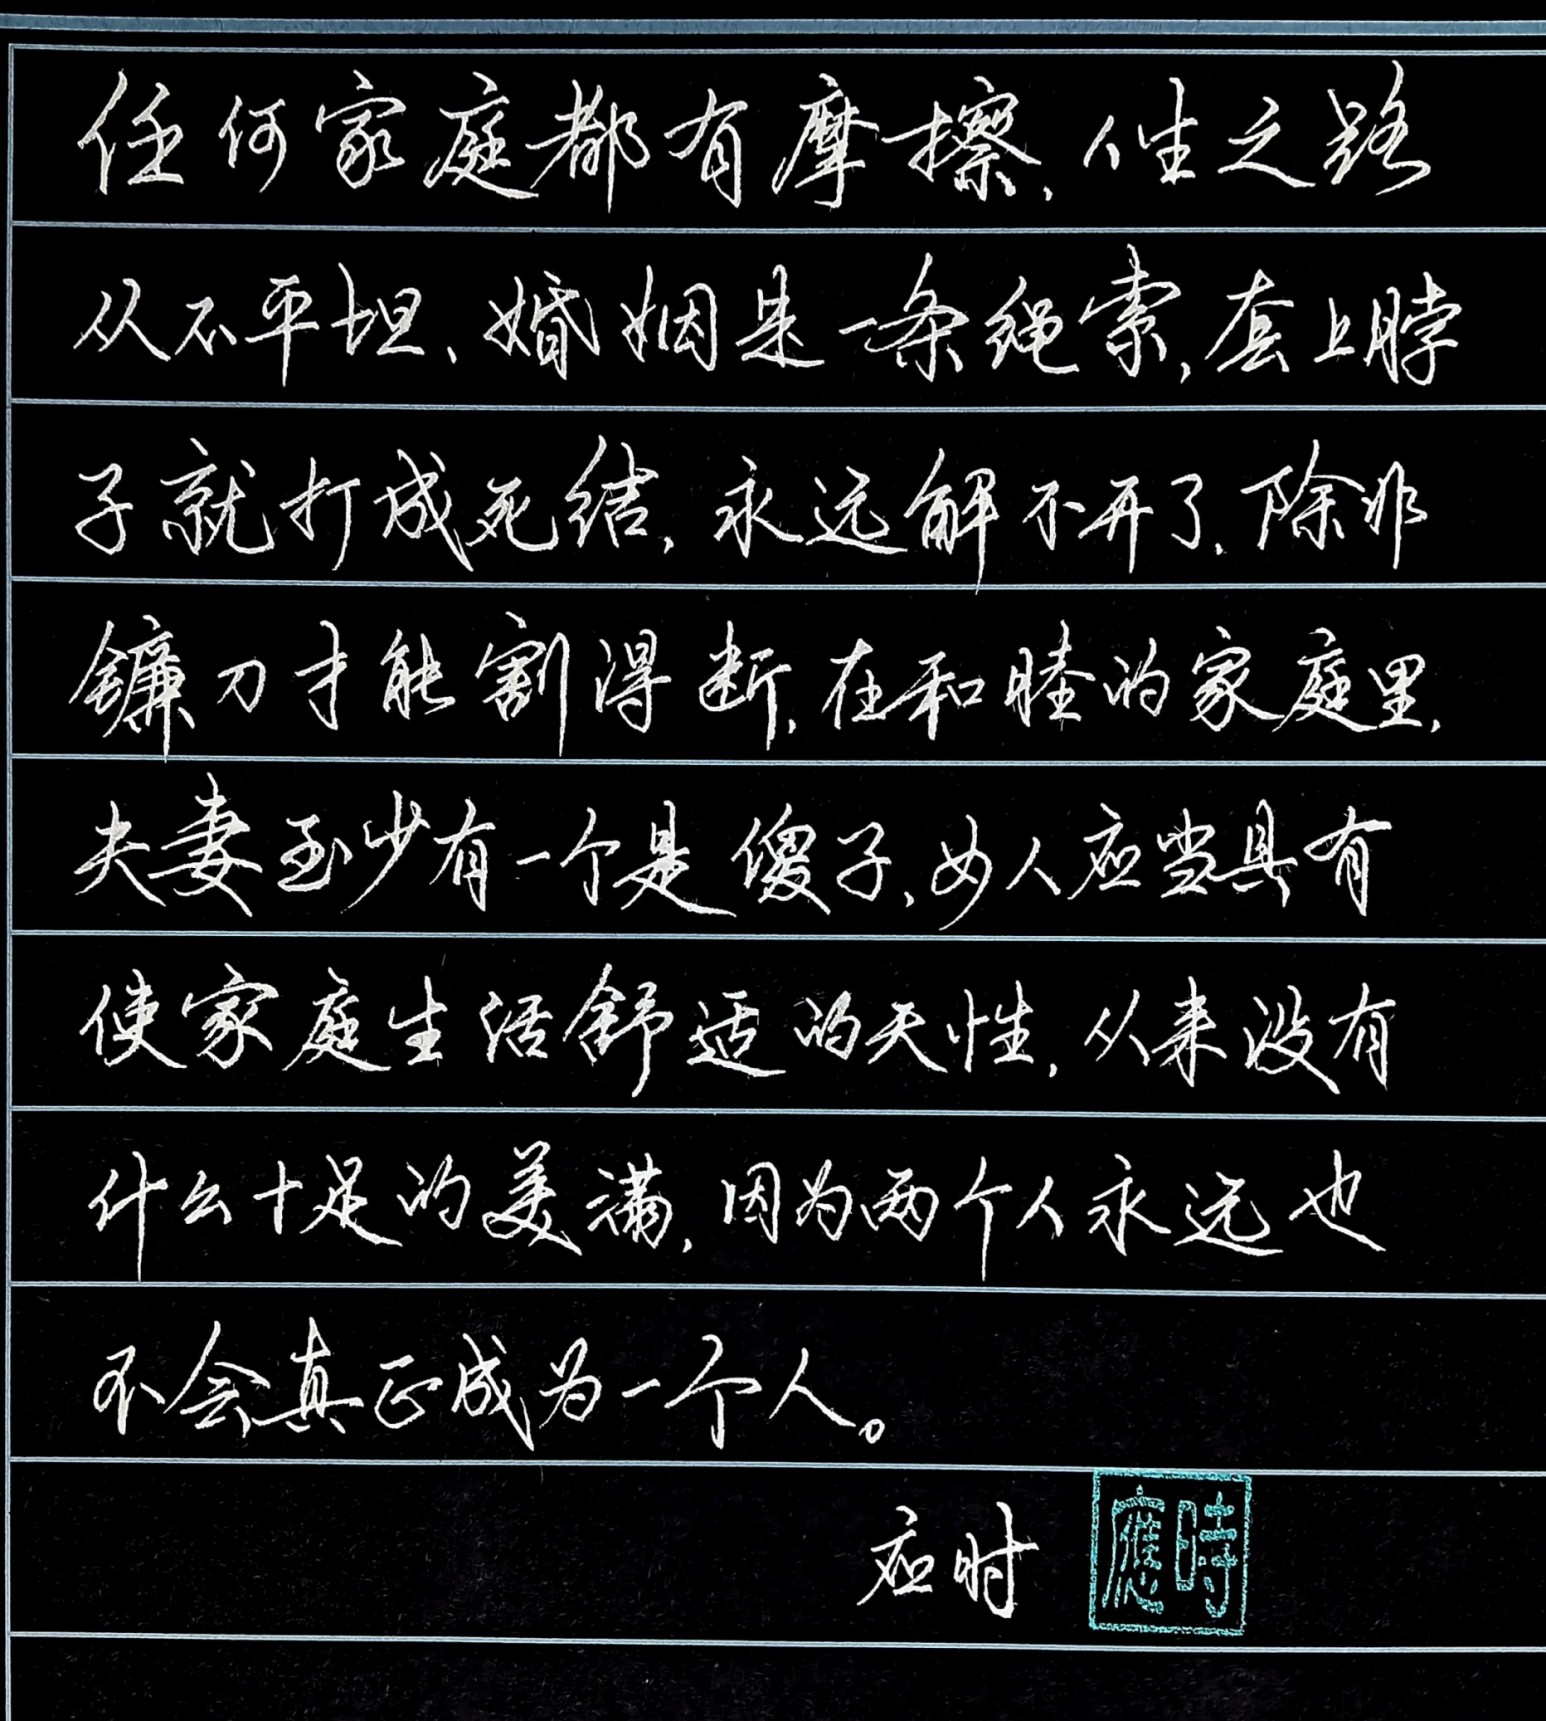 任何家庭都有摩擦,人生之路
从不平坦、婚姻是一条绳索,套上脖
子就打成死结,永远解不开了,除非
镰刀才能割得断,在和睦的家庭里,
夫妻至少有一个是傻子,女人应当具有
使家庭生活舒适的天性,从来没有
什么十足的美满,因为两个人永远也
不会真正成为一个人。
应时
應時